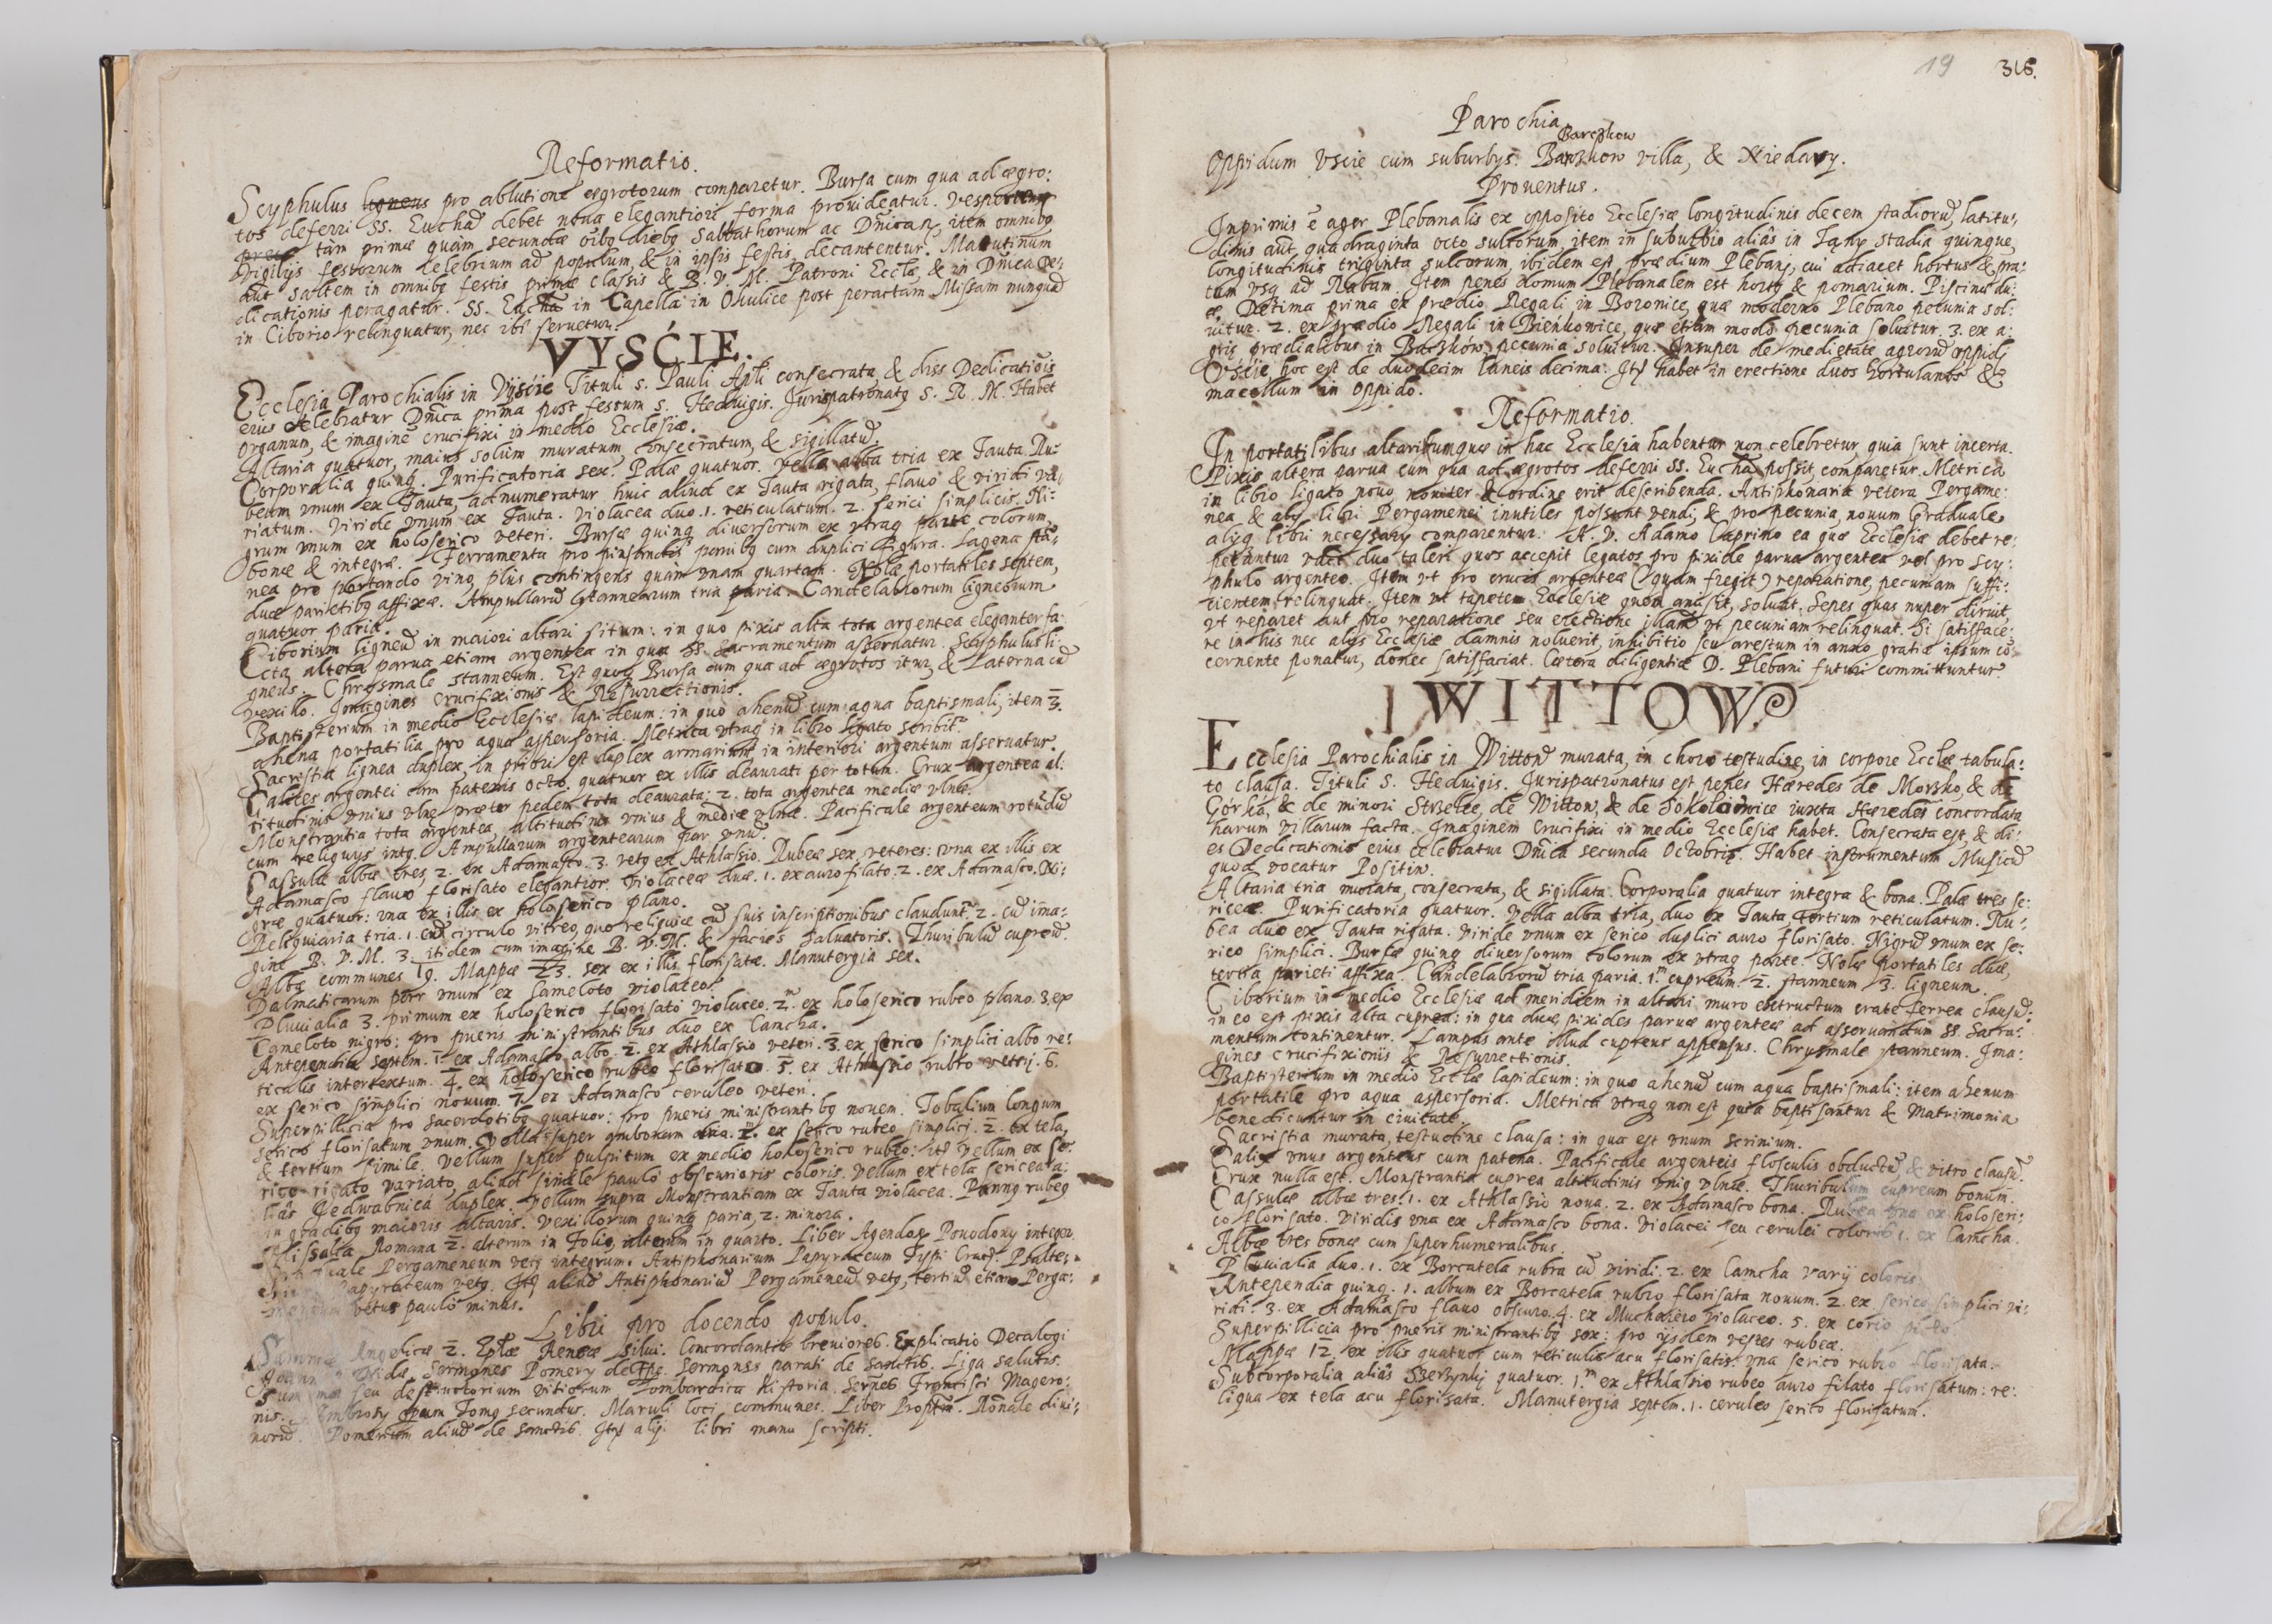 Reformatio.
Scyphulus ligneus pro ablutione ægrotorum comparetur. Bursa cum qua ad ægro:
tos deferri SS. Euchã debet noua elegantiori forma prouideatur. Vesperæ
tàm primæ quàm secundæ oĩbq diebq Sabbathorum ac Dñicarũ, item omnibq
Vigilijs festorum celebrium ad populum, & in ipsis festis, decantentur. Matutinum
aut saltem in omnibq festis primæ classis & B. V. M. Patroni Eccłæ, & in Dñica De:
dicationis peragatur. SS. Euchã in Capella in Okulice post peractam Missam nunquã
in Ciborio relinquatur, nec ibi seruetur.
VYSĆIE.
Ecclesia Parochialis in Vyście Tituli S. Pauli Apłi consecrata, & dies Dedicatiõis
eius celebratur Dñica prima post festum S. Heduigis. Jurispatronatq S. R. M. Habet
organum, & imaginẽ crucifixi in medio Ecclesiæ.
Altaria quatuor, maius solùm muratum, consecratum, & sigillatũ.
Corporalia quinq. Purificatoria sex. Palæ quatuor. Vella alba tria ex Tauta. Ru:
beum vnum ex Tauta, adnumeratur huic aliud ex Tauta rigata, flauo & viridi va:
riatum. Viride vnum ex Tauta. Violacea duo. 1. reticulatum. 2. serici simplicis. Ni:
grum vnum ex holoserico veteri. Bursæ quinq diuersorum ex vtraq parte colorum,
bonæ & integræ. Ferramenta pro pinsendis panibq cum duplici figura. Lagena stã:
nea pro portando vino, plùs contingens quàm vnam quartam. Nolæ portatiles septem,
duæ parietibq affixæ. Ampullarũ stannearum tria paria. Candelabrorum ligneorum
quatuor paria.
Ciborium ligneũ in maiori altari situm: in quo pixis alta tota argentea eleganter fa:
cta, altera parua etiam argentea in qua SS. Sacramentum asseruatur. Scyphulus li:
gneus. Chrysmale stanneum. Est quoq Bursa cum qua ad ægrotos itur, & Laterna cũ
vexillo. Jmagines Crucifixionis & Resurrectionis.
Baptisterium in medio Ecclesiæ lapideum: in quo ahenũ cum aqua baptismali, item 3.
ahena portatilia pro aqua aspersoria. Metrica vtraq in libro ligato scribitr.
Sacristia lignea duplex, in priori est duplex armarium in interiori argentum asseruatur.
Calices argentei cum patenis octo, quatuor ex illis deaurati per totum. Crux argentea al:
titudinis vnius vlnę præter pedem tota deaurata: 2. tota argentea mediæ vlnæ.
Monstrantia tota argentea, altitudinis vnius & mediæ vlnæ. Pacificale argenteum rotũdũ
cum reliquijs intq. Ampullarum argentearum par vnũ.
Cassulæ albæ tres, 2. ex Adamasco. 3. vetq ex Athlassio. Rubeæ sex, veteres: vna ex illis ex
Adamasco flauo florisato elegantior. Violaceæ duæ. 1. ex auro filato. 2. ex Adamasco. Ni:
græ quatuor: vna ex illis ex holoserico plano.
Reliquiaria tria. 1. cũ circulo vitreo, quo reliquiæ cũ suis inscriptionibus claudunt. 2. cũ ima:
gine B. V. M. 3. itidem cum imagine B. V. M. & facies Saluatoris. Thuribulũ cupreũ.
Albæ communes 19. Mappæ 23. sex ex illis florisatæ. Manutergia sex.
Dalmaticarum par vnum ex Cameloto violaceo.
Pluuialia 3. primum ex holoserico florisato violaceo. 2. ex holoserico rubeo plano. 3. ex
Cameloto nigro: pro pueris ministrantibus duo ex Camcha.
Antependia septem. 1. ex Adamasco albo. 2. ex Athlassio veteri. 3. ex serico simplici albo re:
ticulis intertextum. 4. ex holoserico rubeo florisato. 5. ex Athlassio rubro veteri. 6.
ex serico simplici nouum. 7. ex Adamasco ceruleo veteri.
Superpillicia pro Sacerdotibq quatuor: pro pueris ministrantibq nouem. Tobalium longum
serico florisatum vnum. Vella super ambonem tria. 1. ex serico rubeo simplici. 2. ex tela,
& tertium simile. Vellum super pulpitum ex medio holoserico rubeo: itẽ vellum ex se:
rico rigato variato, aliud simile paulò obscurioris coloris. Vellum ex tela sericea a:
liàs Jedwabnicá duplex. Vellum supra Monstrantiam ex Tauta violacea. Pannq rubeq
in gradibq maioris altaris. Vexillorum quinq paria, 2. minora.
Missalia Romana 2. alterum in Folio, alterum in quarto. Liber Agendorũ Powodouy integer.
Pergameneum vetq integrum. Antiphonarium Papyraceum Typi Crac. Psalte:
Papyraceum vetq. Itẽ aliud Antiphonariũ Pergameneũ vetq, tertiũ etiam Perga:
vetus paulò minus.
Libri pro docendo populo.
Angelicæ 2. Epłæ Aeneæ Silui. Concordantiæ breuiores. Explicatio Decalogi
Sermones Pomerij de Tpe. Sermones parati de Sanctis. Liga salutis.
seu destructorium vitiorum. Lombardica Historia. Sermes Francisci Magero:
nis. Ambrosij operum Tomq secundus. Maruli loci communes. Liber Proptiã. Rõnale diui:
norũ. Pomerium aliud de Sanctis. Itẽ alij libri manu scripti.
19
316.
Parochia
Barczkow
Oppidum Vscie cum suburbijs. Barzkow villa, & Niedary.
Prouentus.
Inprimis ẽ ager Plebanalis ex opposito Ecclesiæ longitudinis decem stadiorũ, latitu:
dinis aut, quadraginta octo sulcorum, item in suburbio aliâs in Tany stadia quinque,
longitudinis triginta sulcorum, ibidem est prædium Plebani, cui adiacet hortus & pra:
tum vsq ad Rabam. Item penes domum Plebanalem est hortq & pomarium. Piscinæ du:
æ. Decima prima ex prædio Regali in Boronice, quæ moderno Plebano pecunia sol:
uitur. 2. ex prædio Regali in Bieńkowice, quæ etiàm modò pecunia soluitur. 3. ex a:
gris prædialibus in Barzków, pecunia soluitur. Insuper de medietate agrorũ oppidi
Vście, hoc est de duodecim laneis decima. Itẽ habet in erectione duos hortulanos &
macellum in oppido.
Reformatio.
In portatilibus altaribus quæ in hac Ecclesia habentur non celebretur, quia sunt incerta.
Pixis altera parua cum qua ad ægrotos deferri SS. Euchã possit, comparetur. Metrica
in libro ligato nouo, nouiter & ordine erit describenda. Antiphonaria vetera Pergame:
nea & alij libri Pergamenei inutiles possunt vendi, & pro pecunia, nouum Graduale
alijq libri necessarij comparentur. A. V. Adamo Caprino ea quæ Ecclesiæ debet re:
petantur vdet duo taleri quos accepit legatos pro pixide parua argentea vel pro scy:
phulo argenteo. Item vt pro crucis argenteæ (quam fregit) reparatione, pecuniam suffi:
cientem relinquat. Item vt tapetem Ecclesiæ quem amisit, soluat. Sepes quas nuper diruit,
vt reparet aut pro reparatione seu erectione illarũ vt pecuniam relinquat. Si satisface:
re in his nec alijs Ecclesiæ damnis noluerit, inhibitio seu arestum in anno gratiæ ipsum cõ:
cernente ponatur, donec satisfaciat. Cætera diligentiæ D. Plebani futuri committuntur.
WITTOW
Ecclesia Parochialis in Wittow murata, in choro testudine, in corpore Eccłæ tabula:
to clausa. Tituli S. Heduigis. Jurispatronatus est penes Hæredes de Morsko, & de
Górká, & de minori Strzelce, de Wittow, & de Sokołowice iuxta Hæredes concordata
harum villarum facta. Imaginem Crucifixi in medio Ecclesiæ habet. Consecrata est, & di:
es Dedicationis eius celebratur Dñica secunda Octobris. Habet instrumentum Musicũ
quod vocatur Positiw.
Altaria tria murata, consecrata, & sigillata. Corporalia quatuor integra & bona. Palæ tres se:
riceæ. Purificatoria quatuor. Vella alba tria, duo ex Tauta, tertium reticulatum. Ru:
bea duo ex Tauta rigata. Viride vnum ex serico duplici auro florisato. Nigrũ vnum ex se:
rico simplici. Bursæ quinq diuersorum colorum ex vtraq parte. Nolæ portatiles duæ,
tertia parieti affixa. Candelabrorũ tria paria. 1m cupreum. 2. stanneum 3. ligneum.
Ciborium in medio Ecclesiæ ad meridiem in altari muro extructum crate ferrea clausũ:
in eo est pixis alta cuprea: in qua duæ pixides paruæ argenteæ ad asseruandum SS. Sacra:
mentum continentur. Lampas ante illud cupreus appensus. Chrysmale stanneum. Ima:
gines crucifixionis & Resurrectionis.
Baptisterium in medio Eccłæ lapideum: in quo ahenũ cum aqua baptismali: item ahenum
portatile pro aqua aspersoria. Metrica vtraq non est quia baptisantur & Matrimonia
benedicuntur in ciuitate.
Sacristia murata, testudine clausa: in qua est vnum scrinium.
Calix vnus argenteus cum patena. Pacificale argenteis flosculis obductũ, & vitro clausũ.
Crux nulla est. Monstrantia cuprea altitudinis vniq vlnæ. Thuribulum cupreum bonum.
Cassulæ albæ tres. 1. ex Athlassio noua. 2. ex Adamasco bona. Rubea vna ex holoseri:
co florisato. Viridis vna ex Adamasco bona. Violacei seu cerulei coloris 1. ex Camcha.
Albæ tres bonæ cum superhumeralibus.
Pluuialia duo. 1. ex Borcatela rubra cũ viridi. 2. ex Camcha varij coloris.
Antependia quinq. 1. album ex Borcatela rubro florisata nouum. 2. ex serico simplici vi:
ridi. 3. ex Adamasco flauo obscuro. 4. ex Muchaiero violaceo. 5. ex corio picto.
Superpillicia pro pueris ministrantibq sex: pro ijsdem vestes rubeæ.
Mappæ 12. ex illis quatuor cum reticulis acu florisatis. vna serico rubro florisata.
Subcorporalia aliâs Szerzynki quatuor. 1m ex Athlassio rubeo auro filato florisatum: re:
liqua ex tela acu florisata. Manutergia septem. 1. ceruleo serico florisatum.